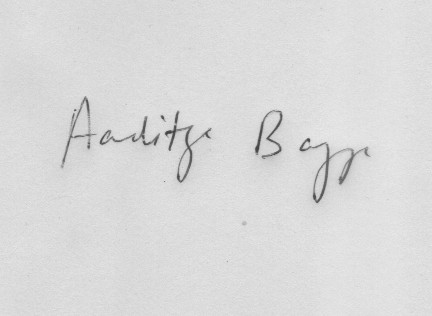 Aaditya Bagga